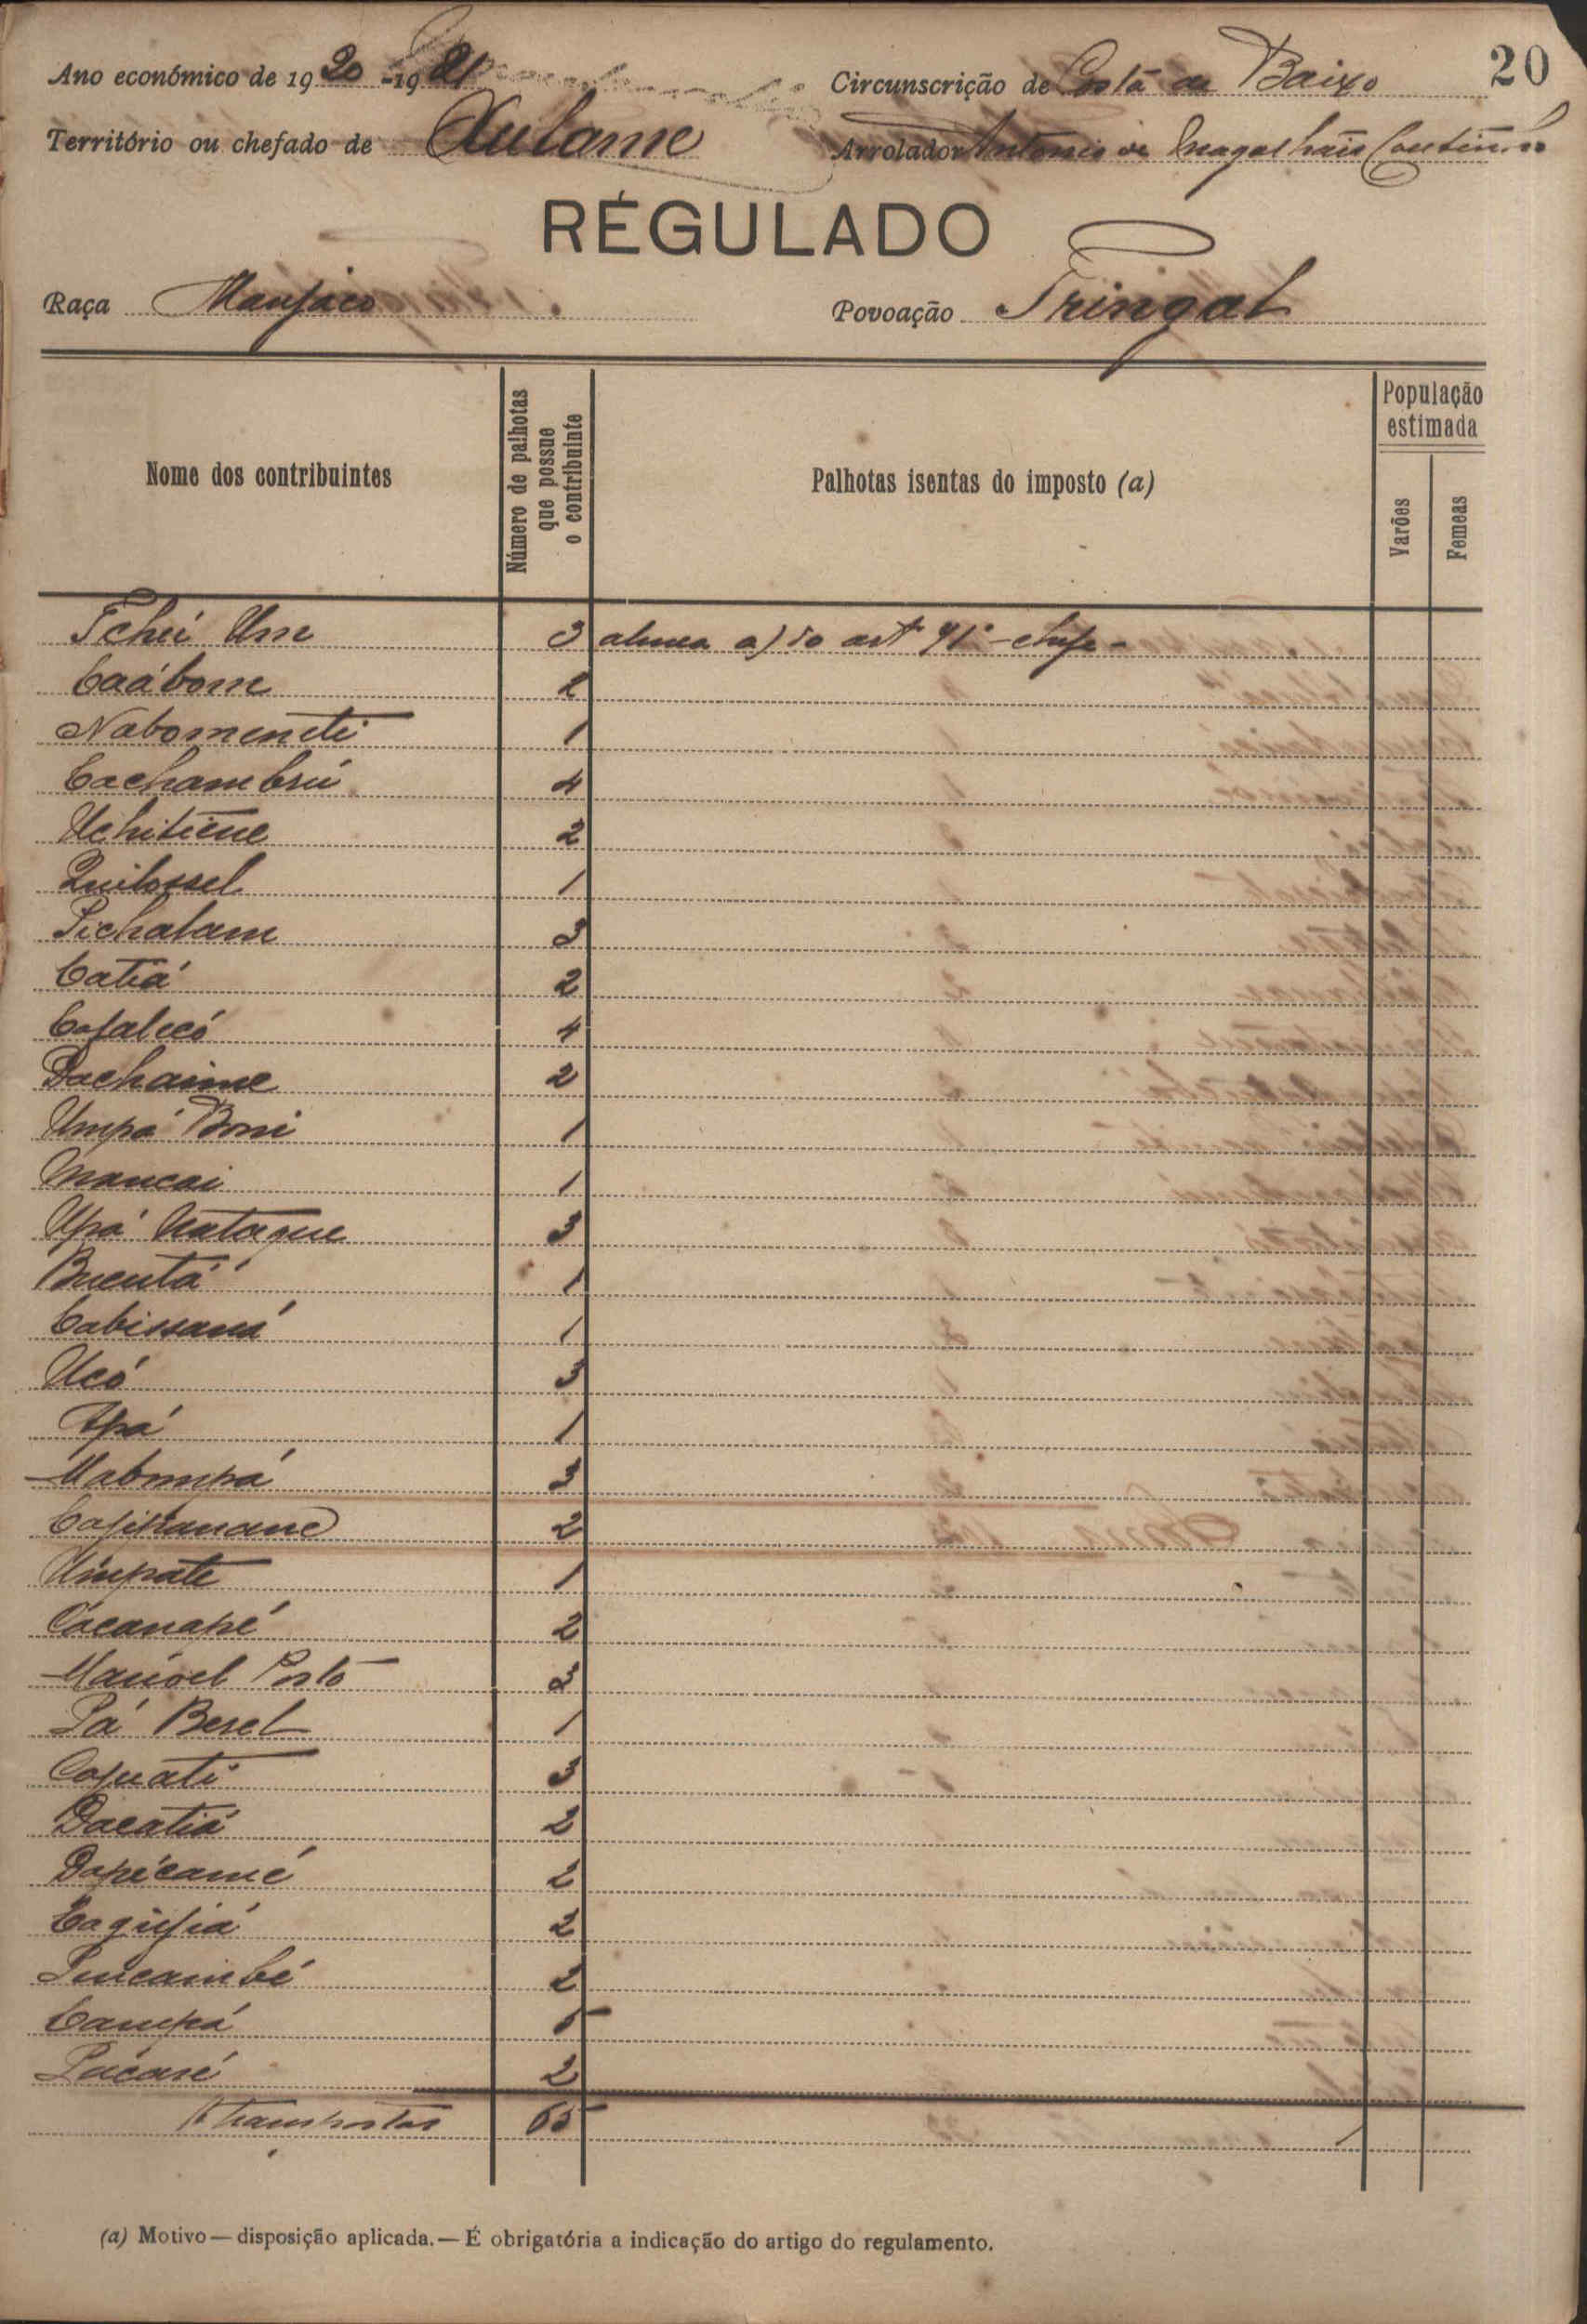 20
Ano económico de 1920-1921 Circunscrição de Costa de Baixo
Território ou chefado de Arrolador Antonio de Magalhães Coutinho
RÉGULADO
Raça Manjaco Povoação Tringal
Nome dos contribuintes
Número de palhotas que possue o contribuinte
Palhotas isentas do imposto (a)
População estimada
Varões
Femeas
Tchui Um 3 alinea a) do art º - chefe -
Caábom
Nabomenete 1
Cachambrú 4
Uchitiene 2
1
Pichalam 3
Catiá 2
Cajalecó 4
Dachaime 2
Umpá Boni 1
Mancai 1
Upá Nataque 3
Bucutá 1
Cabissaná 1
Ucó 3
Upá 1
Mabumpá 3
2
Umpate 1
Cacanapé 2
Manoel Porto
Pá Besel 1
Cajuati 3
Dacatiá 2
Dapécamé 2
Caquijiá 2
2
Campá
2
65
(a) Motivo—disposição aplicada.—É obrigatória a indicação do artigo do regulamento.